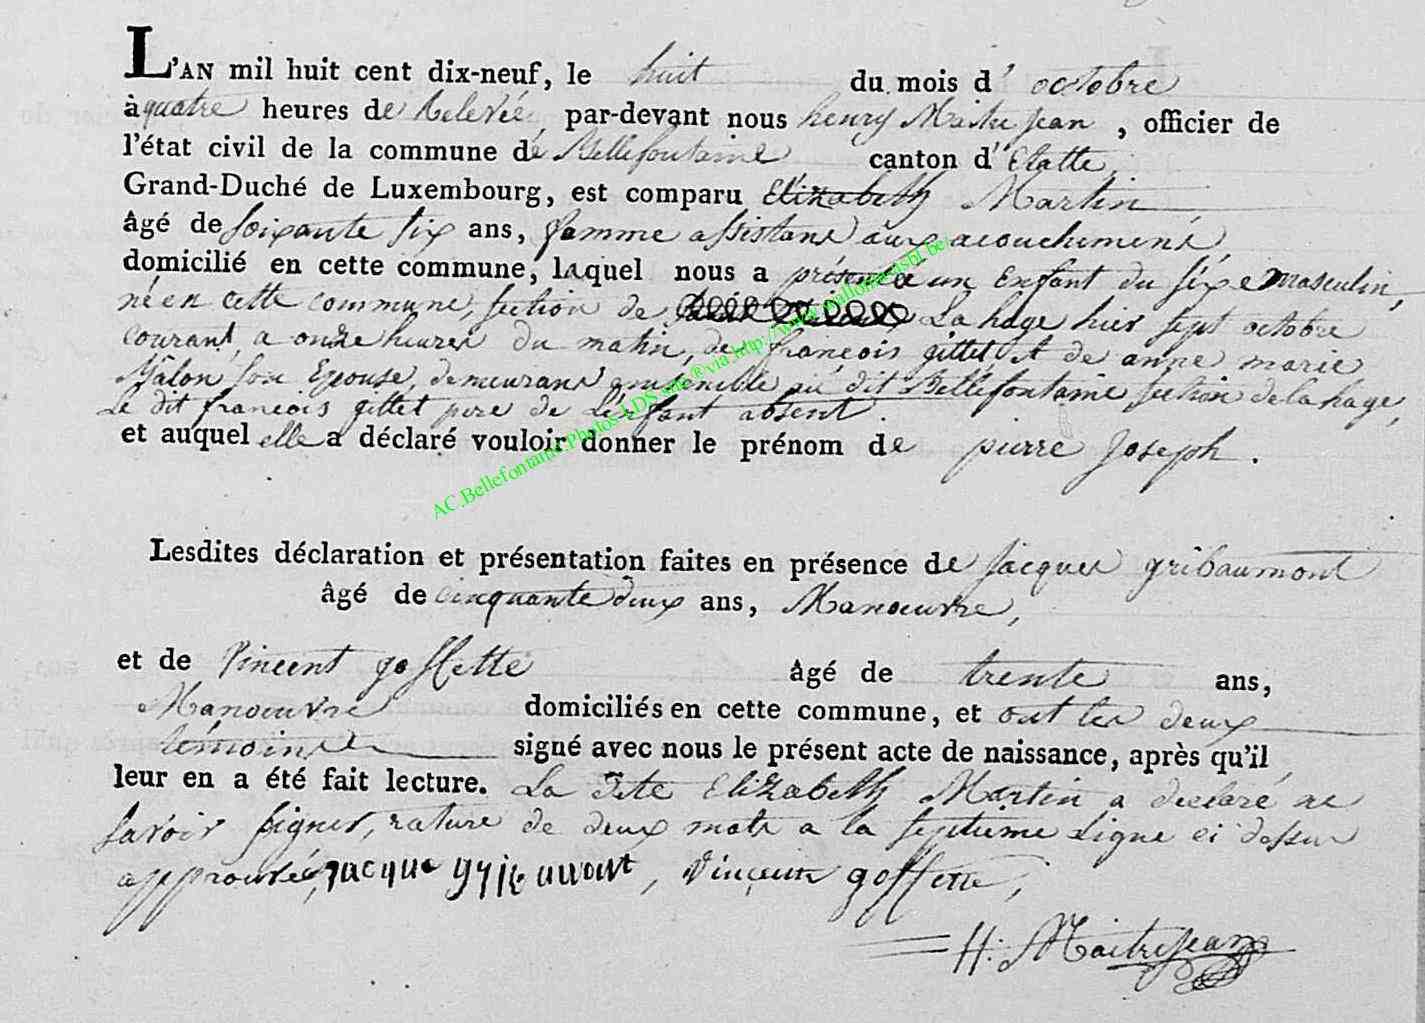 L'AN mil huit cent dix-neuf, le huit du mois d'octobre
à quatre heures de Relevée, par-devant nous henry Maitrejean, officier de
l'état civil de la commune de Bellefontaine canton d'Etalle,
Grand-Duché de Luxembourg, est comparu Elizabeth Martin,
âgé de soixante six ans, famme assistant aux acouchemens
domicilié en cette commune, laquel nous a présenté un Enfant du séxe masculin,
né en cette commune, section de La hage hier sept octobre
courant, a onze heures du matin, de françois gillet et de anne marie
son Epouse, demeurans au dit Bellefontaine section de la hage,
Le dit françois gillet pere de L'enfant absent.
et auquel elle a déclaré vouloir donner le prénom de pierre Joseph.
Lesdites déclaration et présentation faites en présence de Jacques gribaumont
âgé de cinquante deux ans, Manoeuvre,
et de Vincent goffette âgé de trente ans,
Manoeuvre domiciliés en cette commune, et ont les deux
témoins signé avec nous le présent acte de naissance, après qu'il
leur en a été fait lecture. La dite Elizabeth Martin a declaré ne
savoir signer, rature de deux mots a la septieme Ligne ci dessus
approuvée, jacque, Vincent goffette,
H. Maitrejean
AC.Bellefontaine.Photos.LDS